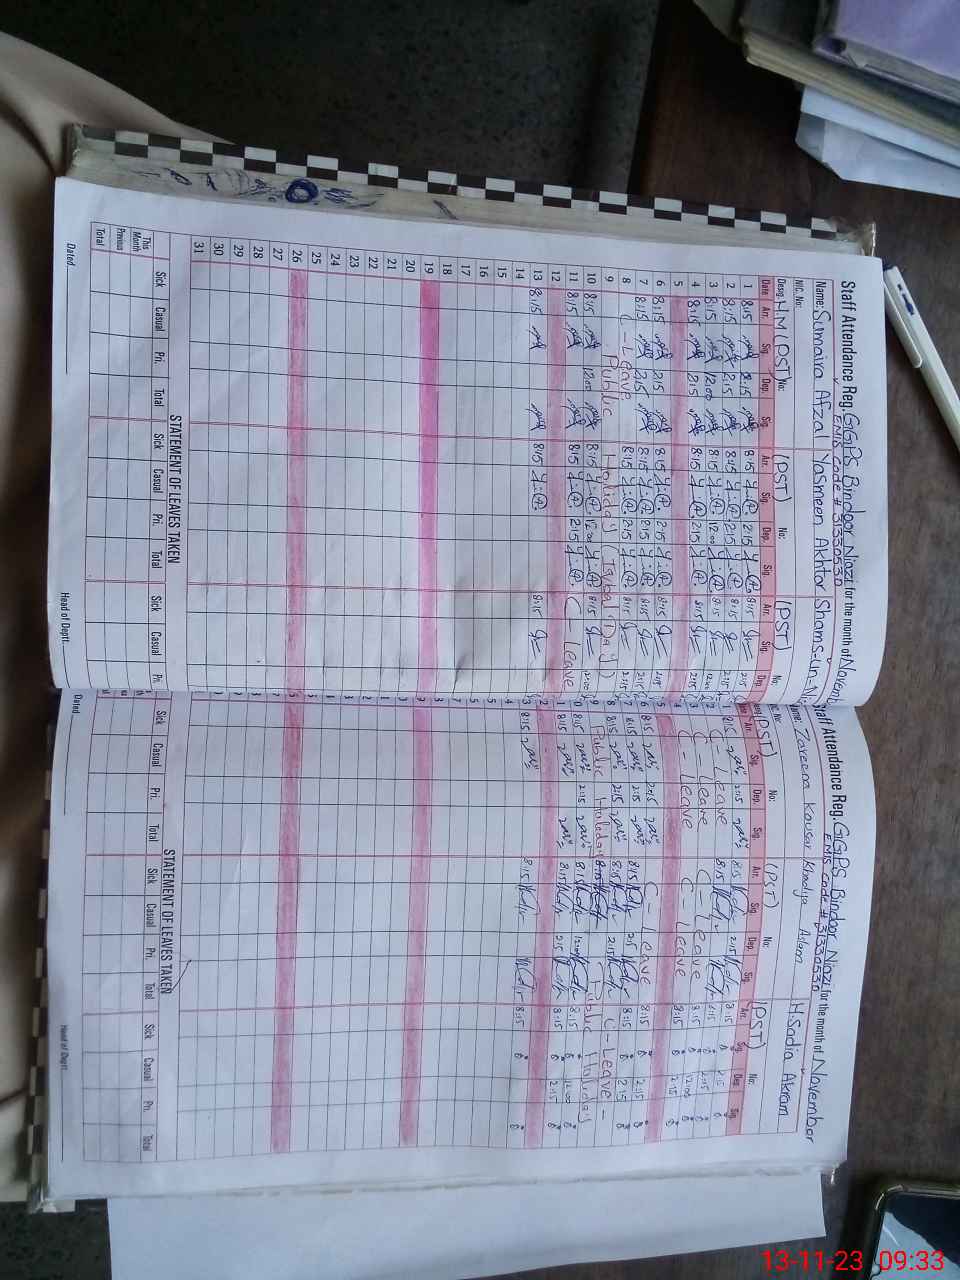 Staff Attendance Reg. GGPS Bindoor Niazi for the month of Novemb
EMIS Code # 31330530
Name: Sumaira Afzal Yasmeen Akhtar Shams-un-N
NIC. No:
Desg. H.M (PST) No: (PST) No: (PST) No:
Date Arr. Sig. Dep. Sig. Arr. Sig. Dep. Sig. Arr. Sig. Dep.
1 8:15 2:15 8:15 Y.A 2:15 Y.A 8:15 2:15
2 8:15 2:15 8:15 Y.A 2:15 Y.A 8:15 2:15
3 8:15 12:00 8:15 Y.A 12:00 Y.A 8:15 12:00
4 8:15 2:15 8:15 Y.A 2:15 Y.A 8:15 2:15
5
6 8:15 2:15 8:15 Y.A 2:15 Y.A 8:15 2:15
7 8:15 2:15 8:15 Y.A 2:15 Y.A 8:15 2:15
8 C - Leave 8:15 Y.A 2:15 Y.A 8:15 2:15
9 Public Holiday (Iqbal Day)
10 8:15 12:00 8:15 Y.A 12:00 Y.A 8:15 12:00
11 8:15 8:15 Y.A 2:15 Y.A C - Leave
12
13 8:15 8:15 Y.A 8:15
14
15
16
17
18
19
20
21
22
23
24
25
26
27
28
29
30
31
STATEMENT OF LEAVES TAKEN
Sick Casual Pri. Total Sick Casual Pri. Total Sick Casual Pri.
This Month
Previous
Total
Dated Head of Deptt.
Staff Attendance Reg. GGPS Bindoor Niazi for the month of November
EMIS code # 31330530
Name: Zareena Kausar Khadija Aslam H. Sadia Akram
NIC. No:
(PST) No: (PST) No: (PST) No:
Arr. Sig. Dep. Sig. Arr. Sig. Dep. Sig. Arr. Sig. Dep. Sig.
1 8:15 2:15 8:15 2:15 8:15 2:15
2 C - Leave 8:15 8:15 2:15
3 C - Leave C - Leave 8:15 12:00
4 C - Leave C - Leave 8:15 2:15
5
6 8:15 2:15 C - Leave 8:15 2:15
7 8:15 2:15 8:15 2:15 8:15 2:15
8 8:15 2:15 8:15 2:15 C - Leave -
9 Public Holiday Public Holiday
0 8:15 2:15 8:15 12:00 8:15 12:00
1 8:15 8:15 2:15 8:15 2:15
2
3 8:15 8:15 8:15
STATEMENT OF LEAVES TAKEN
Sick Casual Pri. Total Sick Casual Pri. Total Sick Casual Pri. Total
Dated Head of Deptt.
13-11-23 09:33